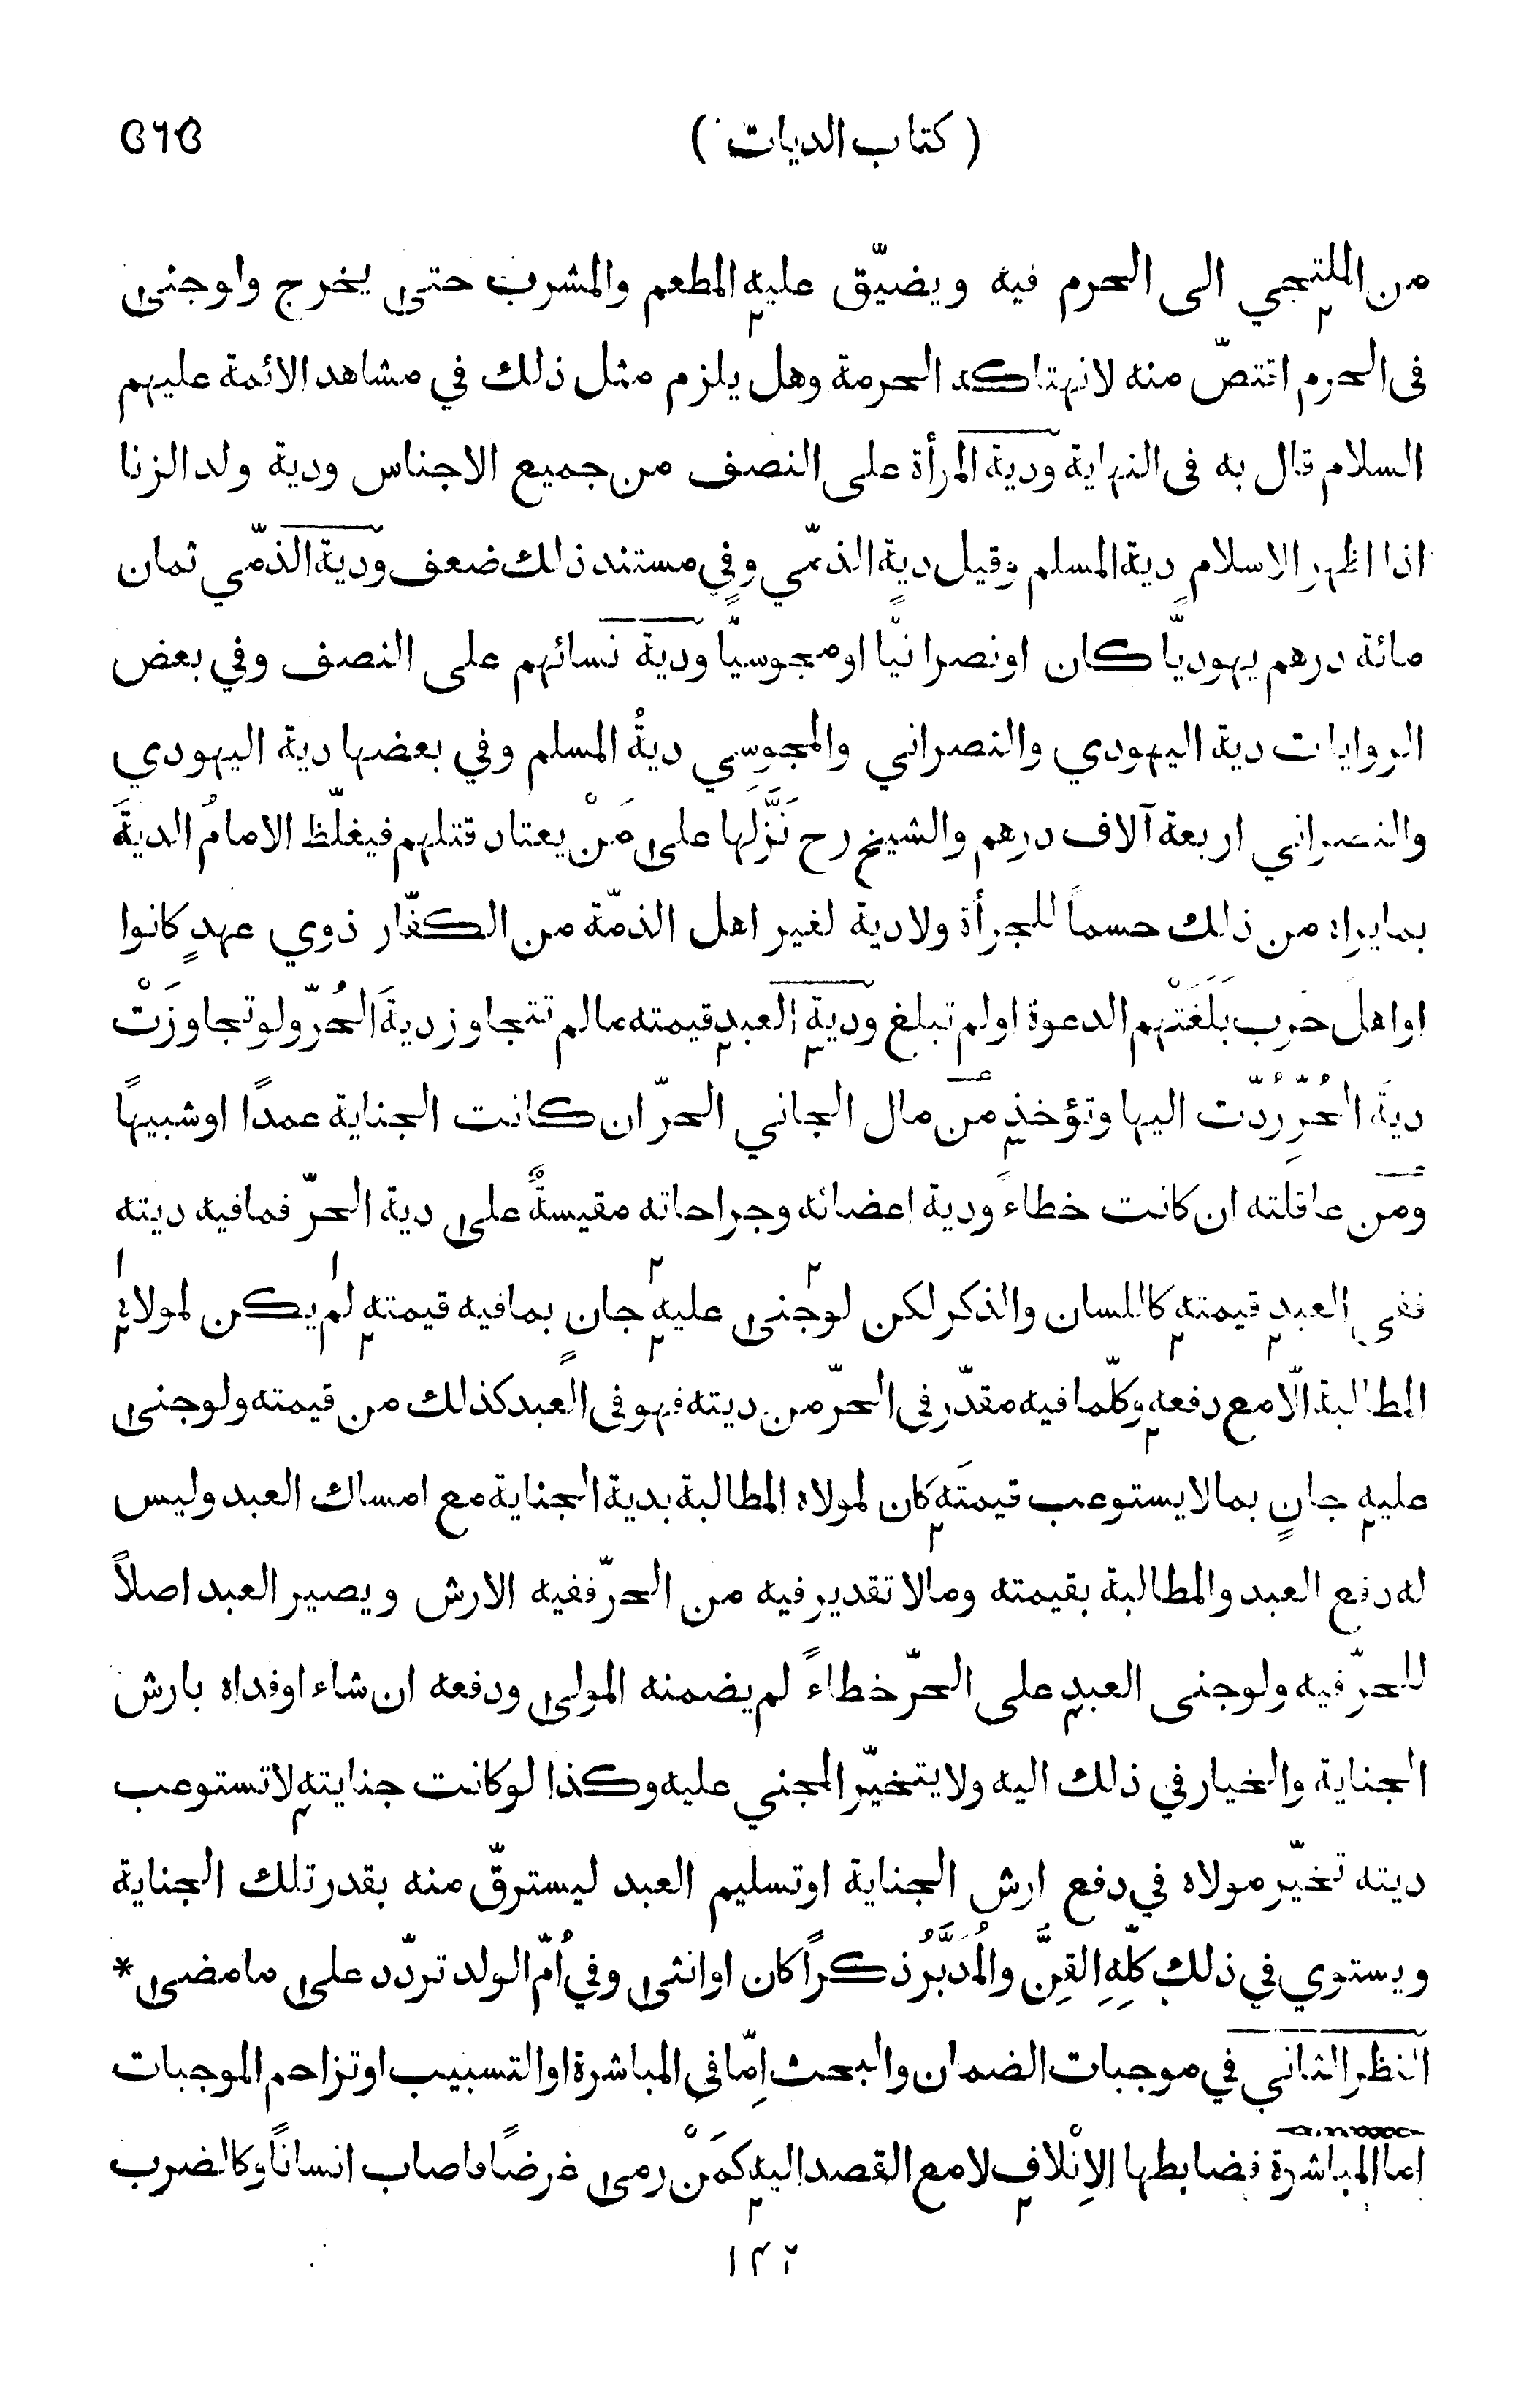 ( كتاب الديات ) ٥٦٥
من الملتجي الى الحرم فيه ويضيّق عليه المطعم والمشرب حتى يخرج ولوجنى
فى الحرم اقتصّ منه لانهتاكه الحرمة وهل يلزم مثل ذلك في مشاهد الائمة عليهم
السلام قال به فى النهاية ودية المرأة على النصف من جميع الاجناس ودية ولد الزنا
اذا اظهر الاسلام دية المسلم وقيل دية الذمّي وفي مستند ذلك ضعف ودية الذمّي ثمان
مائة درهم يهوديًّا كان اونصرانيًّا اومجوسيًّا ودية نسائهم على النصف وفي بعض
الروايات دية اليهودي والنصراني والمجوسِي ديةُ المسلم وفي بعضها دية اليهودي
والنصراني اربعة آلاف درهم والشيخ رح نَزَّلَها على مَنْ يعتاد قتلهم فيغلّظ الامامُ الديةَ
بمايراه من ذلك حسماً للجرأة ولادية لغير اهل الذمّة من الكفّار ذوي عهدٍ كانوا
اواهلَ حرب بَلَغَتْهم الدعوة اولم تبلغ ودية العبدِ قيمته مالم تتجاوز ديةَ الحُرّ ولوتجاوزَتْ
ديةَ الحُرِّ رُدّت اليها وتؤخذ من مال الجاني الحرّ ان كانت الجناية عمدًا اوشبيهًا
ومن عاقلته ان كانت خطاءً ودية اعضائه وجراحاته مقيسةٌ على دية الحرّ فمافيه ديته
ففى العبدِ قيمته كاللسان والذكر لكن لوجنى عليه جانٍ بمافيه قيمته لم يكن لمولاه
المطالبة الّا مع دفعه وكلّما فيه مقدّر فى الحرّ من ديته فهو فى العبد كذلك من قيمته ولوجنى
عليه جانٍ بما لايستوعب قيمتَه كان لمولاه المطالبة بدية الجناية مع امساك العبد وليس
له دفع العبد والمطالبة بقيمته ومالا تقدير فيه من الحرّ ففيه الارش ويصير العبد اصلاً
للحرّ فيه ولوجنى العبد على الحرّ خطاءً لم يضمنه المولى ودفعه ان شاء اوفداه بارش
الجناية والخيار في ذلك اليه ولايتخيّر المجني عليه وكذا لوكانت جنايته لاتستوعب
ديته تخيّر مولاه في دفع ارش الجناية اوتسليم العبد ليسترقّ منه بقدر تلك الجناية
ويستوي في ذلك كلّهِ القِنُّ والمُدَبَّرُ ذكرًا كان اوانثى وفي اُمّ الولد تردّد على مامضى *
النظر الثاني في موجبات الضمان والبحث اِمّا فى المباشرة اوالتسبيب اوتزاحم الموجبات
امّا المباشرة فضابطها الاِتْلاف لامع القصد اليه كمَنْ رمى غرضًا فاصاب انسانًا وكالضرب
١٤٢